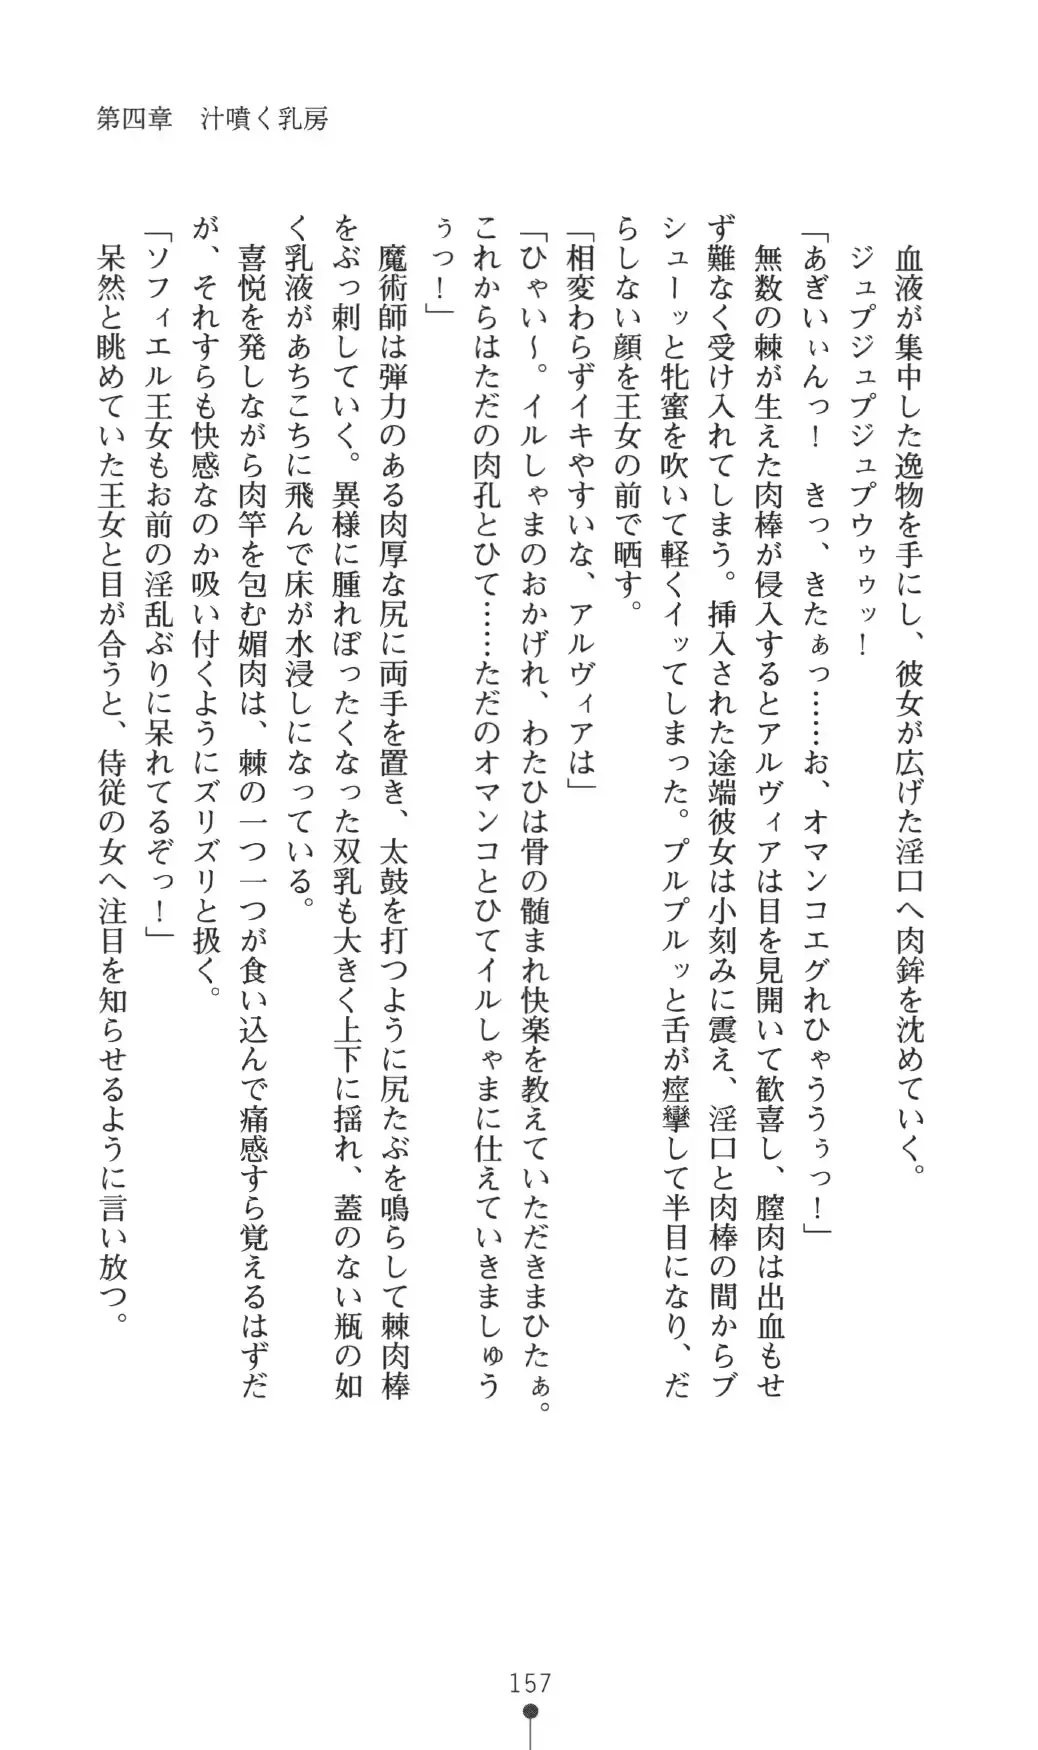 第四章　汁噴く乳房
血液が集中した逸物を手にし、彼女が広げた淫口へ肉鉾を沈めていく。
ジュプジュプジュプウゥゥッ！
「あぎいぃんっ！　きっ、きたぁっ……お、オマンコエグれひゃううぅっ！」
無数の棘が生えた肉棒が侵入するとアルヴィアは目を見開いて歓喜し、膣肉は出血もせ
ず難なく受け入れてしまう。挿入された途端彼女は小刻みに震え、淫口と肉棒の間からブ
シューッと牝蜜を吹いて軽くイッてしまった。プルプルッと舌が痙攣して半目になり、だ
らしない顔を王女の前で晒す。
「相変わらずイキやすいな、アルヴィアは」
「ひゃい～。イルしゃまのおかげれ、わたひは骨の髄まれ快楽を教えていただきまひたぁ。
これからはただの肉孔とひて……ただのオマンコとひてイルしゃまに仕えていきましゅう
ぅっ！」
魔術師は弾力のある肉厚な尻に両手を置き、太鼓を打つように尻たぶを鳴らして棘肉棒
をぶっ刺していく。異様に腫れぼったくなった双乳も大きく上下に揺れ、蓋のない瓶の如
く乳液があちこちに飛んで床が水浸しになっている。
喜悦を発しながら肉竿を包む媚肉は、棘の一つ一つが食い込んで痛感すら覚えるはずだ
が、それすらも快感なのか吸い付くようにズリズリと扱く。
「ソフィエル王女もお前の淫乱ぶりに呆れてるぞっ！」
呆然と眺めていた王女と目が合うと、侍従の女へ注目を知らせるように言い放つ。
157